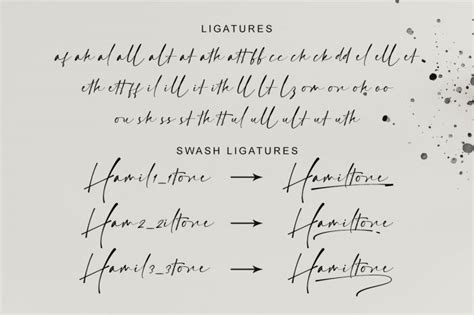 LIGATURES
af ak al all alt at ath att ff cc ck ck dd el ell et
eth ett ff il ill it ith ll lt lz om on ok oo
ou sk ss st th tt ul ull ult ut uth
SWASH LIGATURES
Hamil1_1tone → Hamiltone
Ham2_2iltone → Hamiltone
Hamil3_3tone → Hamiltone